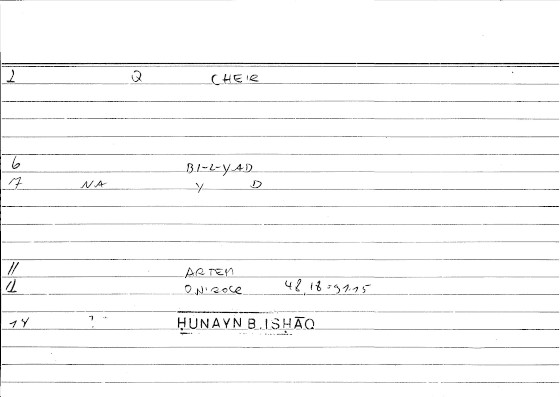 1 Q CHEIR
6 BI-L-YAD
7 NA Y D
11 ARTEM
ONIROCR 48,18 = 91,15
14 ? ḤUNAYN B. ISḤĀQ